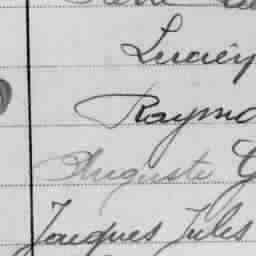 Lucien
Raymo
Auguste G
Jacques Jules